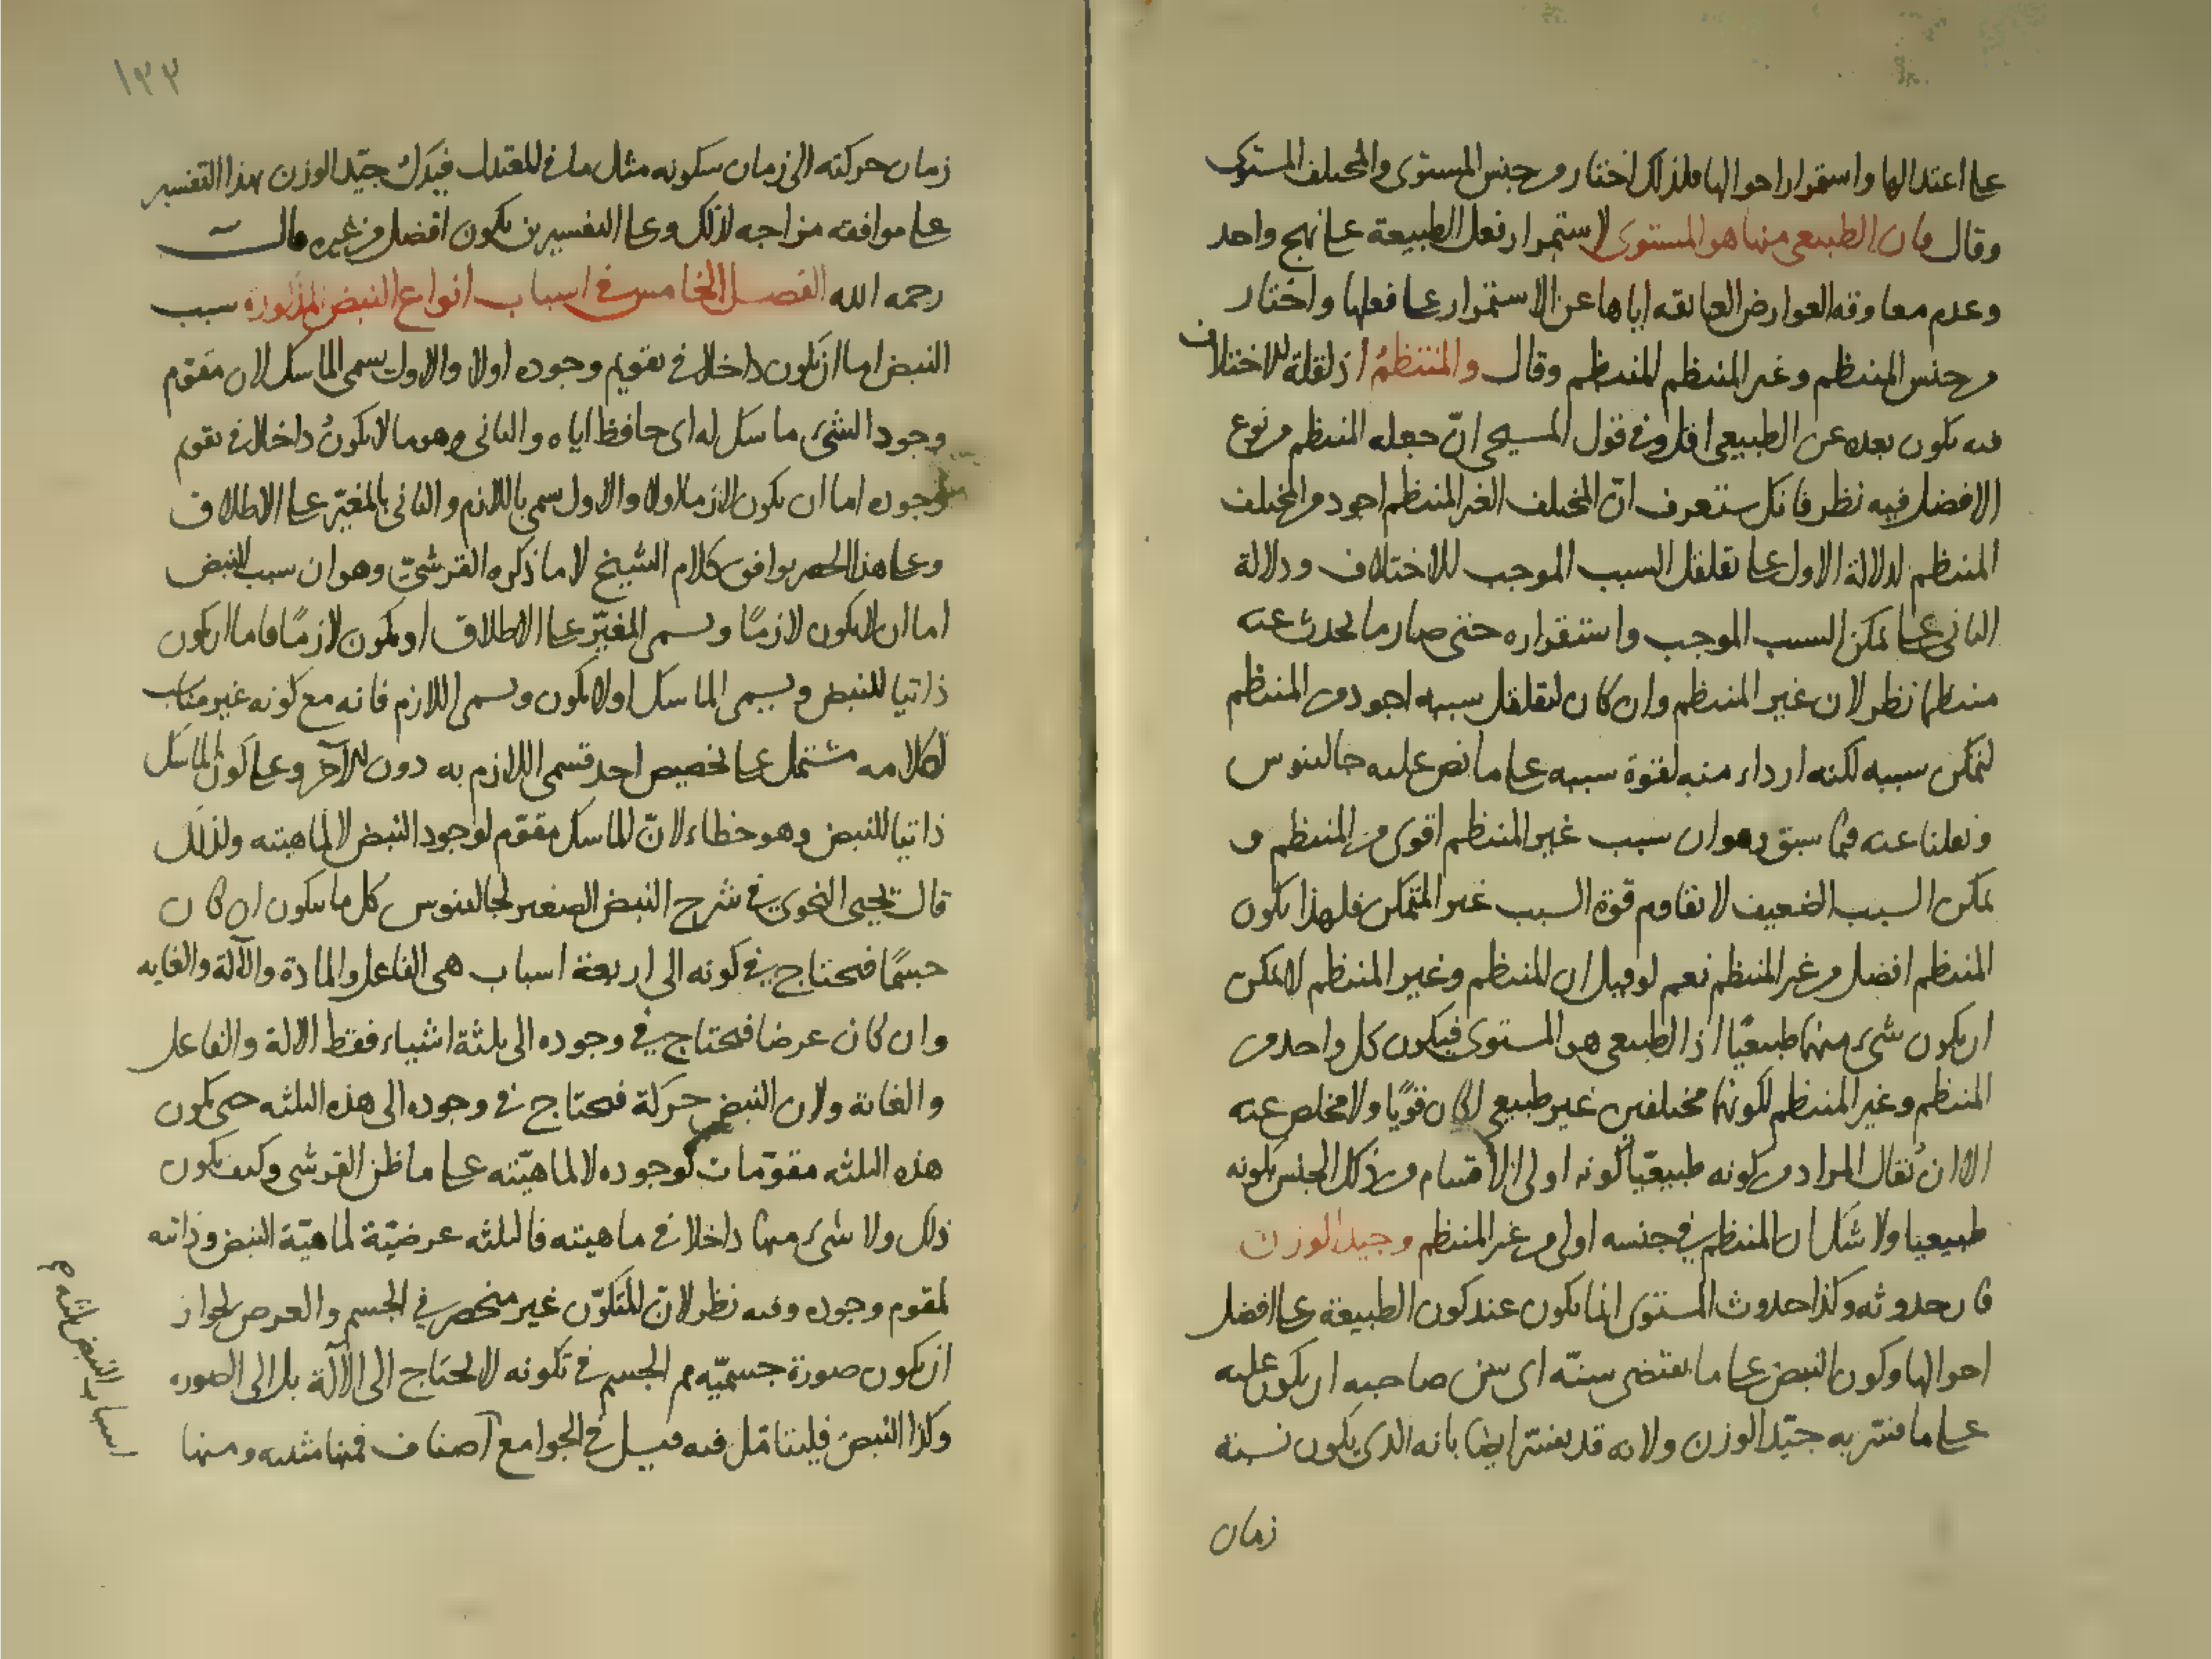 على اعتدالها واستمرار احوالها فلذلك اختار من جنس المستوى والمختلف المستوى
وقال فان الطبيعى منها هو المستوى لاستمرار فعل الطبيعة على نهج واحد
وعدم معاوقه العوارض العايقه اياها عن الاستمرار على فعلها واختار
من جنس المنتظم وغير المنتظم المنتظم وقال والمنتظمُ اذ لقلة الاختلاف
فيه يكون بعده عن الطبيعى اقل وفى قول المسيحى انّ جعله المنتظم من نوع
الافضل فيه نظر فانك ستعرف انّ المختلف الغير المنتظم اجود من المختلف
المنتظم لدلالة الاول على تقلقل السبب الموجب للاختلاف ودلالة
الثانى على تمكن السبب الموجب واستقراره حتى صار ما يحدث عنه
منتظما نظر لان غير المنتظم وان كان لتقلقل سببه اجود من المنتظم
لتمكن سببه لكنه ارداء منه لقوة سببه على ما نص عليه جالينوس
ونقلنا عنه فيما سبق وهو ان سبب غير المنتظم اقوى من المنتظم و
تمكن السبب الضعيف لا تقاوم قوّة السبب غير المتمكن فلهذا يكون
المنتظم افضل من غير المنتظم نعم لو قيل ان المنتظم وغير المنتظم لا يمكن
ان يكون شىء منهما طبيعيًا اذ الطبيعى هو المستوى فيكون كل واحد من
المنتظم وغير المنتظم لكونهما مختلفين غير طبيعى لكان قويًا ولا مخلص عنه
الا ان يُقال المراد من كونه طبيعيّا كونه اولى الاقسام من ذلك الجنس بكونه
طبيعيا ولا شك ان المنتظم فى جنسه اولى من غير المنتظم وجيد الوزن
فان حدوثه وكذا حدوث المستوى انما يكون عند كون الطبيعة على افضل
احوالها وكون النبض على ما يقتضى سنّه اى سن صاحبه ان يكون عليه
على ما فسّر به جيّد الوزن ولانه قد يفسّر ايضا بانه الذى يكون نسبة
زمان
١٣٣
زمان حركته الى زمان سكونه مثل ما فى المعتدل فيدلّ جيّد الوزن بهذا التفسير
على موافقة مزاجه لذلك وعلى التفسيرين يكون افضل من غيره قالـ
رحمه الله الفصل الخامس فى اسباب انواع النبض المذكوره سبب
النبض اما ان يكون داخلا فى تقويم وجوده اولا والاول يسمى الماسك لان مقوم
وجود الشىء ماسك له اى حافظ اياه والثانى وهو ما لا يكونُ داخلا فى تقوم
وجوده اما ان يكون لازما اولا والاول سمى باللازم والثانى بالمغيّر على الاطلاق
وعلى هذا الحصر يوافق كلام الشيخ لا ما ذكره القرشىّ وهو ان سبب النبض
اما ان لا يكون لازمًا ويسمى المغيّر على الاطلاق او يكون لازمًا فاما ان يكون
ذاتيا للنبض ويسمى الماسك اولا يكون ويسمى اللازم فانه مع كونه غير مناسب
لكلامه مشتمل على تخصيص احد قسمى اللازم به دون الآخر وعلى كون الماسك
ذاتيا للنبض وهو خطاء لانّ الماسك مقوّم لوجود النبض لا لماهيته ولذلك
قال يحيى النحوى فى شرح النبض الصغير لجالينوس كل ما يتكون ان كان
جسمًا فيحتاج فى كونه الى اربعة اسباب هى الفاعل والمادة والآلة والغايه
وان كان عرضا فيحتاج فى وجوده الى ثلثة اشياء فقط الآلة والفاعل
والغاية ولان النبض حركة فيحتاج فى وجوده الى هذه الثلثه حتى يكون
هذه الثلثه مقوّمات لوجوده لا لماهيّته على ما ظن القرشى وكيف يكون
ذلك ولا شىء منها داخلا فى ماهيته فالثلثه عرضيّة لماهيّة النبض وذاته
لمقوم وجوده وفيه نظر لانّ المتكوّن غير منحصر فى الجسم والعرض لجواز
ان يكون صورة جسميّه ثم الجسم فى تكونه لا يحتاج الى الآلة بل الى الصوره
وكذا النبضُ فليتأمّل فيه قيل فى الجوامع اصناف فمنها مثبته ومنها
اسباب النبض ثلثه